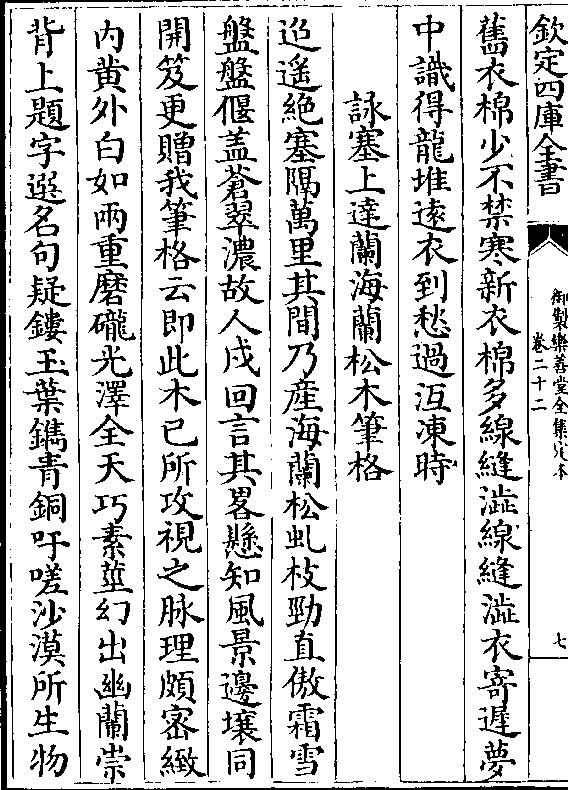 欽定四庫全書
御製樂善堂全集定本
卷二十二
七
舊衣棉少不禁寒新衣棉多線縫澁線縫澁衣寄遲夢
中識得龍堆遠衣到愁過沍凍時
詠塞上達蘭海蘭松木筆格
迢遙絶塞隔萬里其間乃産海蘭松虬枝勁直傲霜雪
盤盤偃盖蒼翠濃故人戍回言其畧懸知風景邊壤同
開笈更贈我筆格云即此木已所攻視之脉理頗宻緻
内黄外白如兩重磨礲光澤全天巧素莖幻出幽蘭崇
背上題字選名句疑鏤玉葉鐫青銅吁嗟沙漠所生物